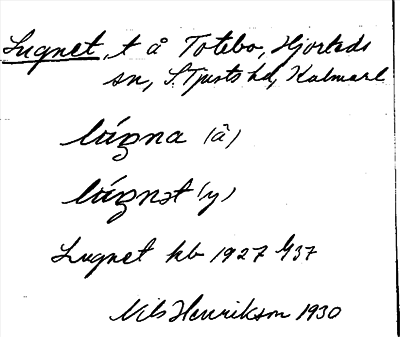 Lugnet, t å Totebo, Hjorteds
sn, S. Tjusts hd, Kalmar l
lúgna (ä)
lúgnət (y)
Lugnet kb 1927 h/37
Nils Henrikson 1930